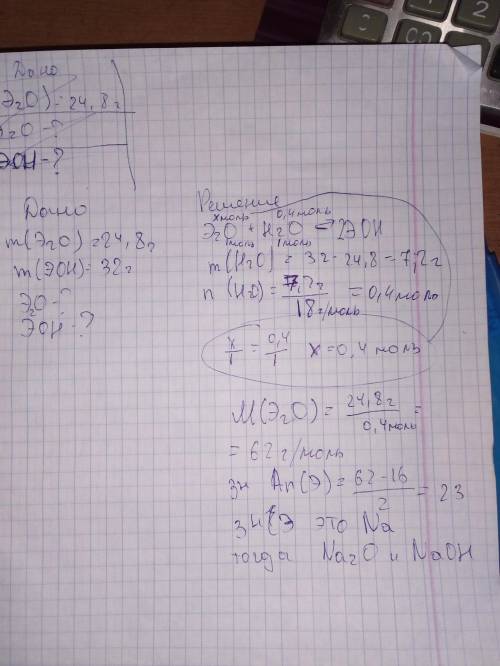 Дано
(Э₂O) = 24,8г
Э₂O - ?
ЭOH - ?
Дано
m(Э₂O) = 24,8г
m(ЭOH) = 32г
Э₂O - ?
ЭOH - ?
Решение
xмоль 0,4моль
Э₂O + H₂O → 2ЭOH
1моль 1моль
m(H₂O) = 32 - 24,8 = 7,2г
n(H₂O) = 7,2г / 18г/моль = 0,4моль
x/1 = 0,4/1 x = 0,4 моль
M(Э₂O) = 24,8г / 0,4моль =
= 62г/моль
зн Ar(Э) = 62-16 / 2 = 23
зн Э это Na
тогда Na₂O и NaOH